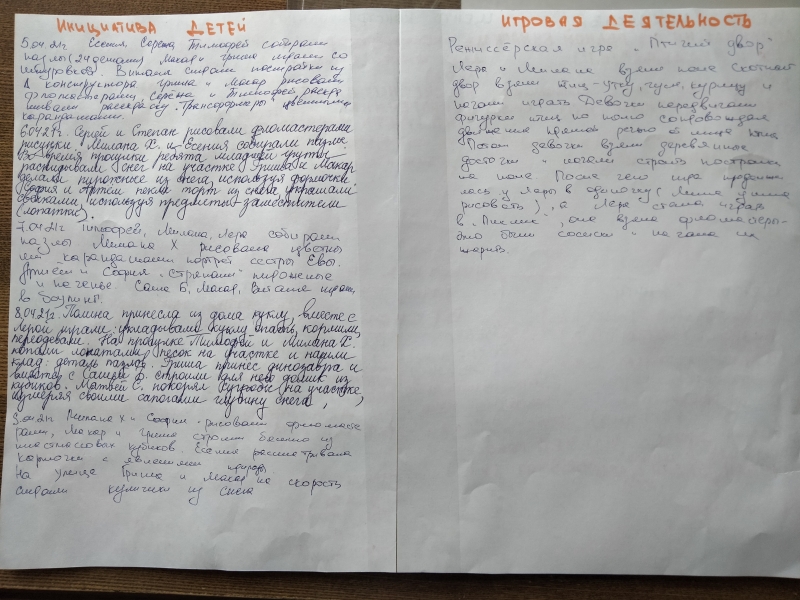 ИНИЦИАТИВА ДЕТЕЙ
5.04.21г. Есения Серёжа Тимофей собирали
пазлы (24 детали) Макар и Гриша играли со
шнуровкой. Виталя строили постройки из
конструктора Гриша и Макар рисовали
фломастерами Серёжа и Тимофей раскра
шивали раскраску "Трансформеры" цветными
карандашами.
6.04.21г. Сергей и Степан рисовали фломастерами
рисунки. Милана Х. и Есения собирали пазлы
Во время прогулки ребята младшей группы
раскидывали снег на участке. Гриша и Макар
делали пирожные из снега, используя формочки
София и Артём пекли торт из снега, украшали
используя предметы заместители
(лопатки).
7.04.21г Тимофей, Милана, Лера собирали
пазлы Милана Х рисовала цветны
ми карандашами портрет сестры Евы.
Арсений и София "стряпали" пирожные
и печенье. Саша Б, Макар, Виталя играли
в боулинг.
8.04.21г. Полина принесла из дома куклу, вместе с
Лерой играли: укладывали куклу спать, кормили,
переодевали. На прогулке Тимофей и Милана Х.
копали лопатами песок на участке и нашли
клад: деталь пазлов. Гриша принёс динозавра и
вместе с Сашей Б. строили для него домик из
кубиков. Матвей С. покорял сугробы на участке,
измеряя своими сапогами глубину снега
9.04.21г Милана Х и София рисовали фломасте
рами, Макар и Гриша строили башню из
пластмассовых кубиков. Есения рассматривала
карточки с явлениями природы
На улице Гриша и Макар на скорость
куличики из снега
ИГРОВАЯ ДЕЯТЕЛЬНОСТЬ
Режиссёрская игра "Птичий двор"
Лера и Милана взяли поле скотный
двор взяли птиц - утку, гуся, курицу и
начали играть Девочки передвигали
фигурки птиц по полю сопровождая
движения прямой речью от лица птиц
Потом девочки взяли деревянные
досточки и начали строить постройки
на поле. После чего игра продолжи
лась у Леры в одиночку (Милана ушла
рисовать), а Лера стала играть
в "Пикник", она взяла фломастеры-
это были сосиски и начала их
жарить.